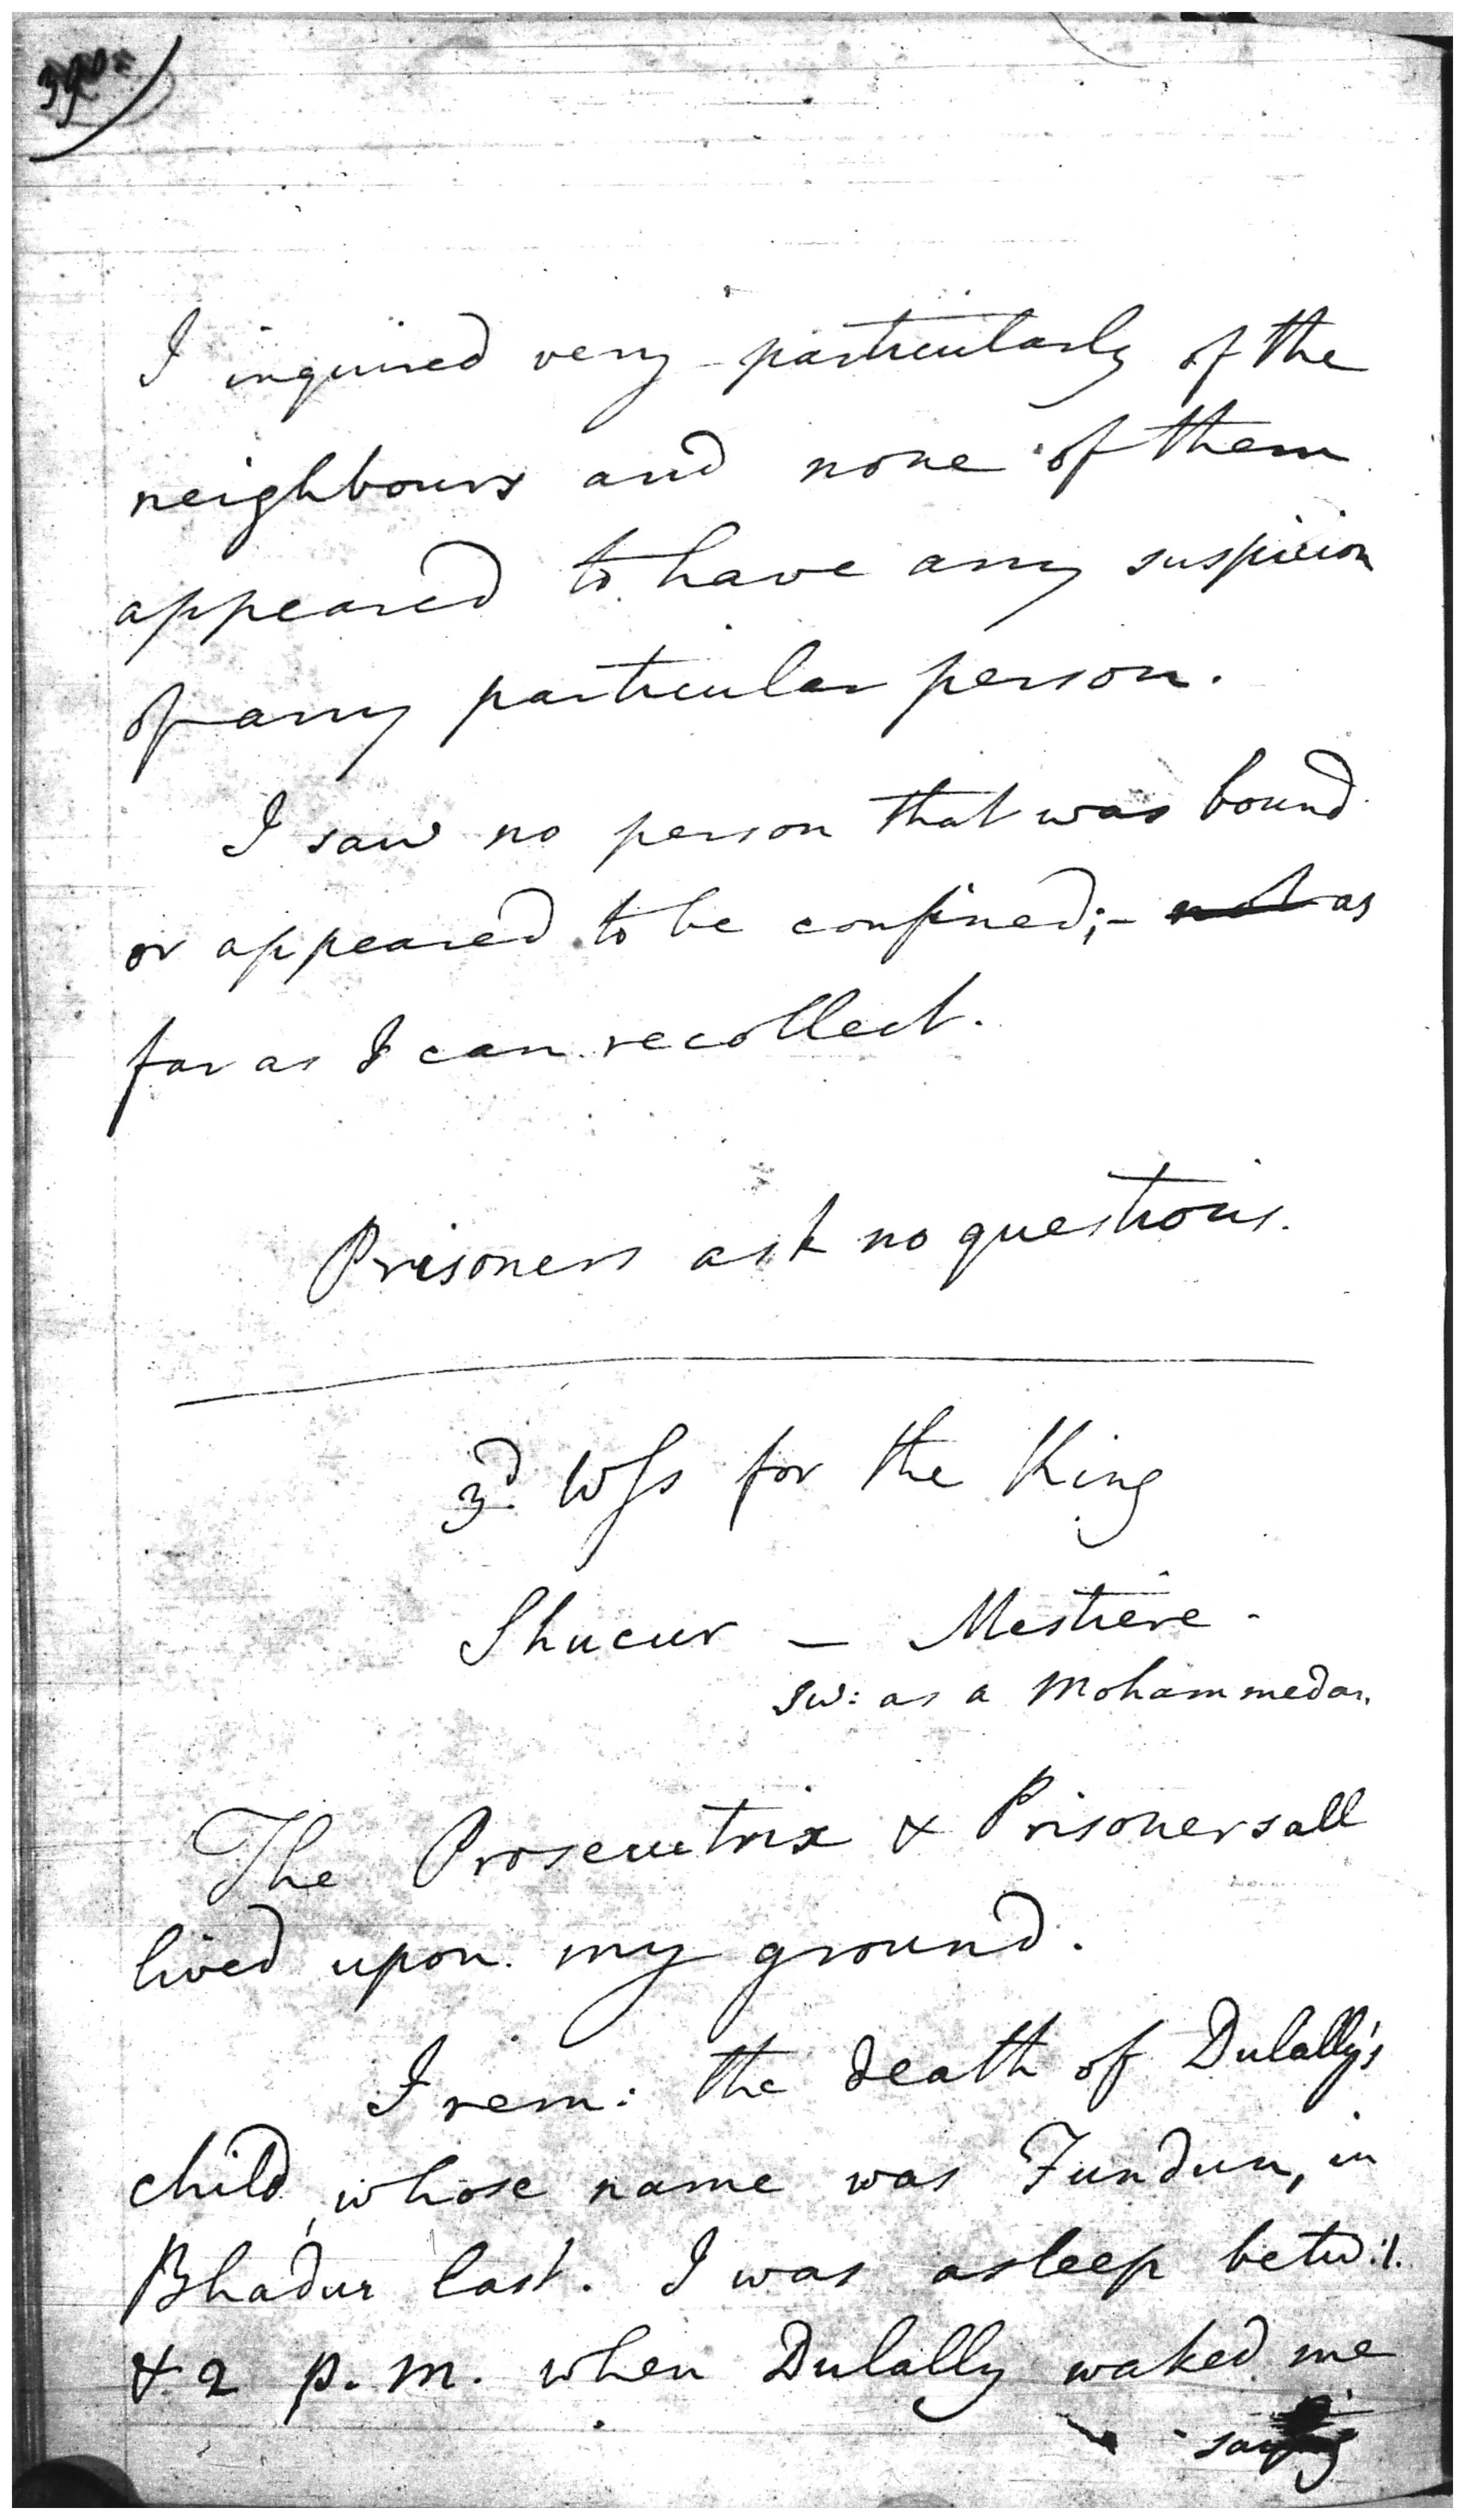 I inquired very particularly of the
neighbours and none of them
appeared to have any suspicion
of any particular person.
I saw no person that was bound
or appeared to be confined;- not as
far as I can recollect.
Prisoners ask no questions.
3d. Wss for the King
Shucur - Mestiere -
sw: as a Mohammedan
The Prosecutrix & Prisoners all
lived upon my ground.
I rem: the death of Dulally's
child, whose name was Fundun, in
Bhadur last. I was asleep betw: 1.
& 2 p.m. when Dulally waked me
saying